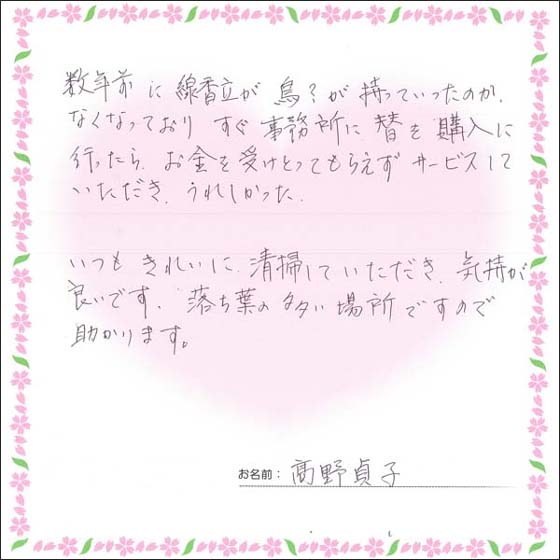 数年前に線香立が鳥?が持っていったのか、
なくなっており すぐ事務所に替を購入に
行ったら、お金を受けとってもらえず サービスして
いただき、うれしかった。
いつも きれいに、清掃していただき、気持が
良いです。落ち葉の多い場所ですので
助かります。
お名前: 髙野貞子